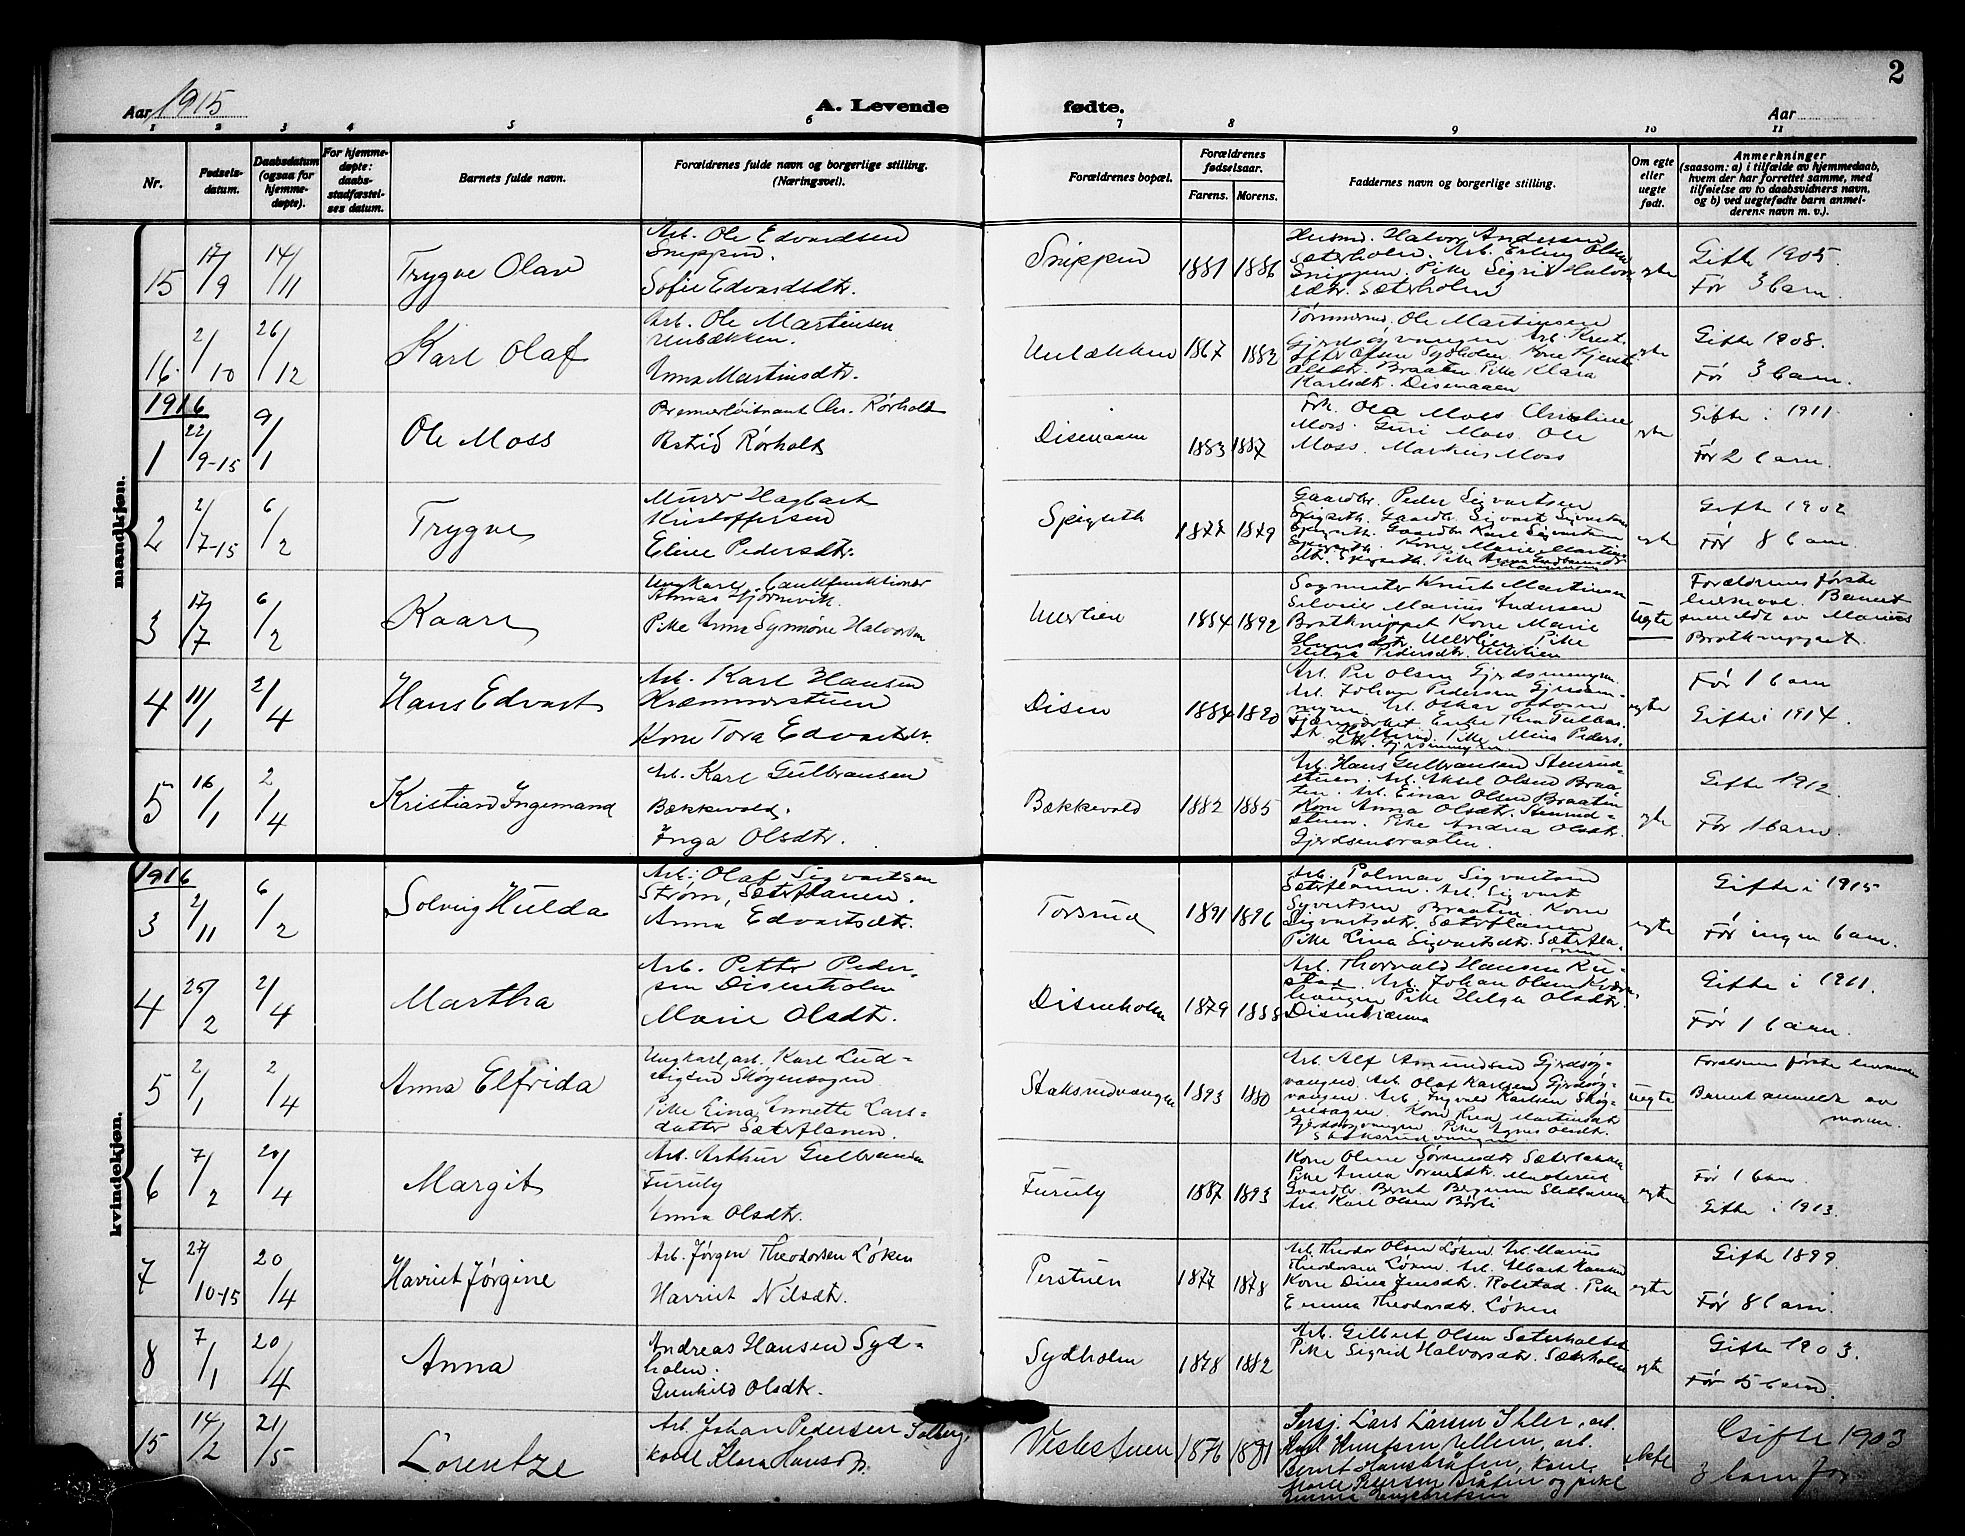 2
Aar 1915
A. Levende fødte.
Aar
1 2 3 4 5 6 7 8 9 10 11
Nr.
Fødselsdatum.
Daabsdatum (ogsaa for hjemmedøpte).
For hjemmedøpte: daabsstadfæstelses datum.
Barnets fulde navn.
Forældrenes fulde navn og borgerlige stilling. (Næringsvei).
Forældrenes bopæl.
Forældrenes fødselsaar.
Farens. Morens.
Faddernes navn og borgerlige stilling.
Om egte eller uegte født.
Anmerkninger
(saasom: a) i tilfælde av hjemmedaab, hvem der har forrettet samme, med tilføielse av to daabsvidners navn, og b) ved uegtefødte barn anmelderens navn m. v.).
mandkjøn.
15 17/9 14/11 Trygve Olav
Arb. Ole Edvardsen
Snippen.
Sofie Edvardsdtr.
Snippen 1881 1886
Husmd. Halvor Andersen
Sæterholen. Arb. Erling Olsen
Snippen. Pike Sigrid Halvors-
dtr. Sæterholen
egte
Gifte 1905.
Før 3 barn.
16. 2/10 26/12 Karl Olaf
Arb. Ole Martinsen
Anna Martinsdtr.
1867 1883
Ole Martinsen
Olsdtr. Braaten. Pike Klara
Karlsdtr. Disenaaen
egte
Gifte 1908.
Før 3 barn.
1916
1 22/9-15 9/1 Ole Moss
Premierløitnant Chr. Rørholt
Astrid Rørholt
Disenaaen 1883 1887
Frk. Ola Moss Christine
Moss. Guri Moss. Ole
Moss. Markus Moss
egte
Gifte i 1911.
Før 2 barn.
2 2/7-15 6/2 Trygve
Murer Hagbart
Kristoffersen
Eline Pedersdtr.
Spigseth 1877 1879
Gaardbr. Peder Sigvartsen
Spigseth. Gaardbr. Sigvart Sigvartsen
Spigseth. Gaardbr. Karl Sigvartsen
Spigseth. Kone Marie Martins-
egte
Gifte 1902
Før 8 barn.
3 17/7 6/2 Kaare
Ungkarl, bankfunktionær
Pike Anna Synnøve Halvorsen
Ullerlien 1884 1892
Sagmester Knut Martinsen
Marius Andersen
Bratknippet Kone Marie
Hansdtr. Ullerlien Pike
Helga Pedersdtr. Ullerlien
Uegte
Forældrenes første
leiermaal. Barnet
anmeldt av Marius
Bratknippet.
4 11/1 2/4 Hans Edvart
Arb. Karl Hansen
Kræmmerstuen
Kone Tora Edvartsdtr.
Disen 1884 1890
Arb. Per Olsen
Arb. Johan Pedersen
Arb. Oskar Ottosen
Pike Mina Peders-
dtr.
egte
Før 1 barn
Gifte i 1914.
5 16/1 2/4 Kristian Ingemand
Arb. Karl Gulbransen
Bækkevold.
Inga Olsdtr.
Bækkevold 1882 1885
Arb. Hans Gulbransen Stenrud-
stuen. Arb. Aksel Olsen Braa-
ten. Arb. Einar Olsen Braaten
Kone Anna Olsdtr. Stenrud-
stuen. Pike Andrea Olsdtr.
Gjerdsenbraaten.
egte
Gifte 1912.
Før 1 barn.
kvindekjøn.
1916
3 2/11 6/2 Solveig Hulda
Arb. Olaf Sigvartsen
Strøm, Sæterflanen.
Anna Edvartsdtr.
Torsrud 1891 1896
Arb. Palmar Sigvartsen
Sæterflanen. Arb. Sigvart
Syvertsen Braaten. Kone
Sigvartsdtr. Sæterflanen
Pike Lina Sigvartsdtr. Sæterfla-
nen
egte
Gifte i 1915
Før ingen barn.
4 25/2 2/4 Martha
Arb. Petter Peder-
sen Disenholen
Marie Olsdtr.
Disenholen 1879 1888
Arb. Thorvald Hansen Ru-
stad. Arb. Johan Olsen
Pike Helga Olsdtr.
Gifte i 1911.
Før 1 barn.
5 2/1 2/4 Anna Elfrida
Ungkarl, arb. Karl Lud-
vigsen Skogensagen
Pike Lina Annette Lars-
datter Sæterflanen.
Staksrudvangen 1893 1880
Arb. Alf Amundsen Gjerdsøg-
vangen. Arb. Olaf Karlsen Gjerdsøg-
vangen. Arb. Ingvald Karlsen Skog-
ensagen. Kone Thea Martinsdtr.
Gjerdsøgvangen. Pike Agnes Olsdtr.
Staksrudvangen
uegte
Forældrenes første leiermaal
Barnet anmeldt av
moren.
6 7/2 20/4 Margit
Arb. Arthur Gulbransen
Furuly
Anna Olsdtr.
Furuly 1887 1893
Kone Oline Sørensdtr. Sæterbakken
Pike Anna Sørensdtr.
Gaardbr. Bernt Bergersen
Arb. Karl Olsen Børli
egte
Før 1 barn.
Gifte i 1913.
7 27/10-15 20/4 Harriet Jørgine
Arb. Jørgen Theodorsen Løken
Harriet Nilsdtr.
Perstuen 1877 1878
Arb. Theodor Olsen Løken. Arb. Marius
Theodorsen Løken. Arb. Albert Hansen
Kone Dina Jensdtr. Rolstad. Pike
Emma Theodorsdtr. Løken
egte
Gifte 1899.
Før 8 barn.
8 7/1 20/4 Anna
Andreas Hansen Syd-
holen.
Gunhild Olsdtr.
Sydholen 1878 1882
Arb. Gilbert Olsen Sæterholen
Pike Sigrid Halvorsdtr. Sæterholen
egte
Gifte 1903.
Før 5 barn.
15 14/2 21/5 Lorentze
Arb. Johan Pedersen Solberg,
kone Klara Hansd.
Vestestuen 1876 1881
Sersj. Lars Larsen Ihler, arb.
Karl Knutsen Ullern, arb.
Bernt Hansen Bråten, kone
Marie Petersen Bråten og pike
Emma Engebretsen
ekte
Gifte 1903
3 barn før